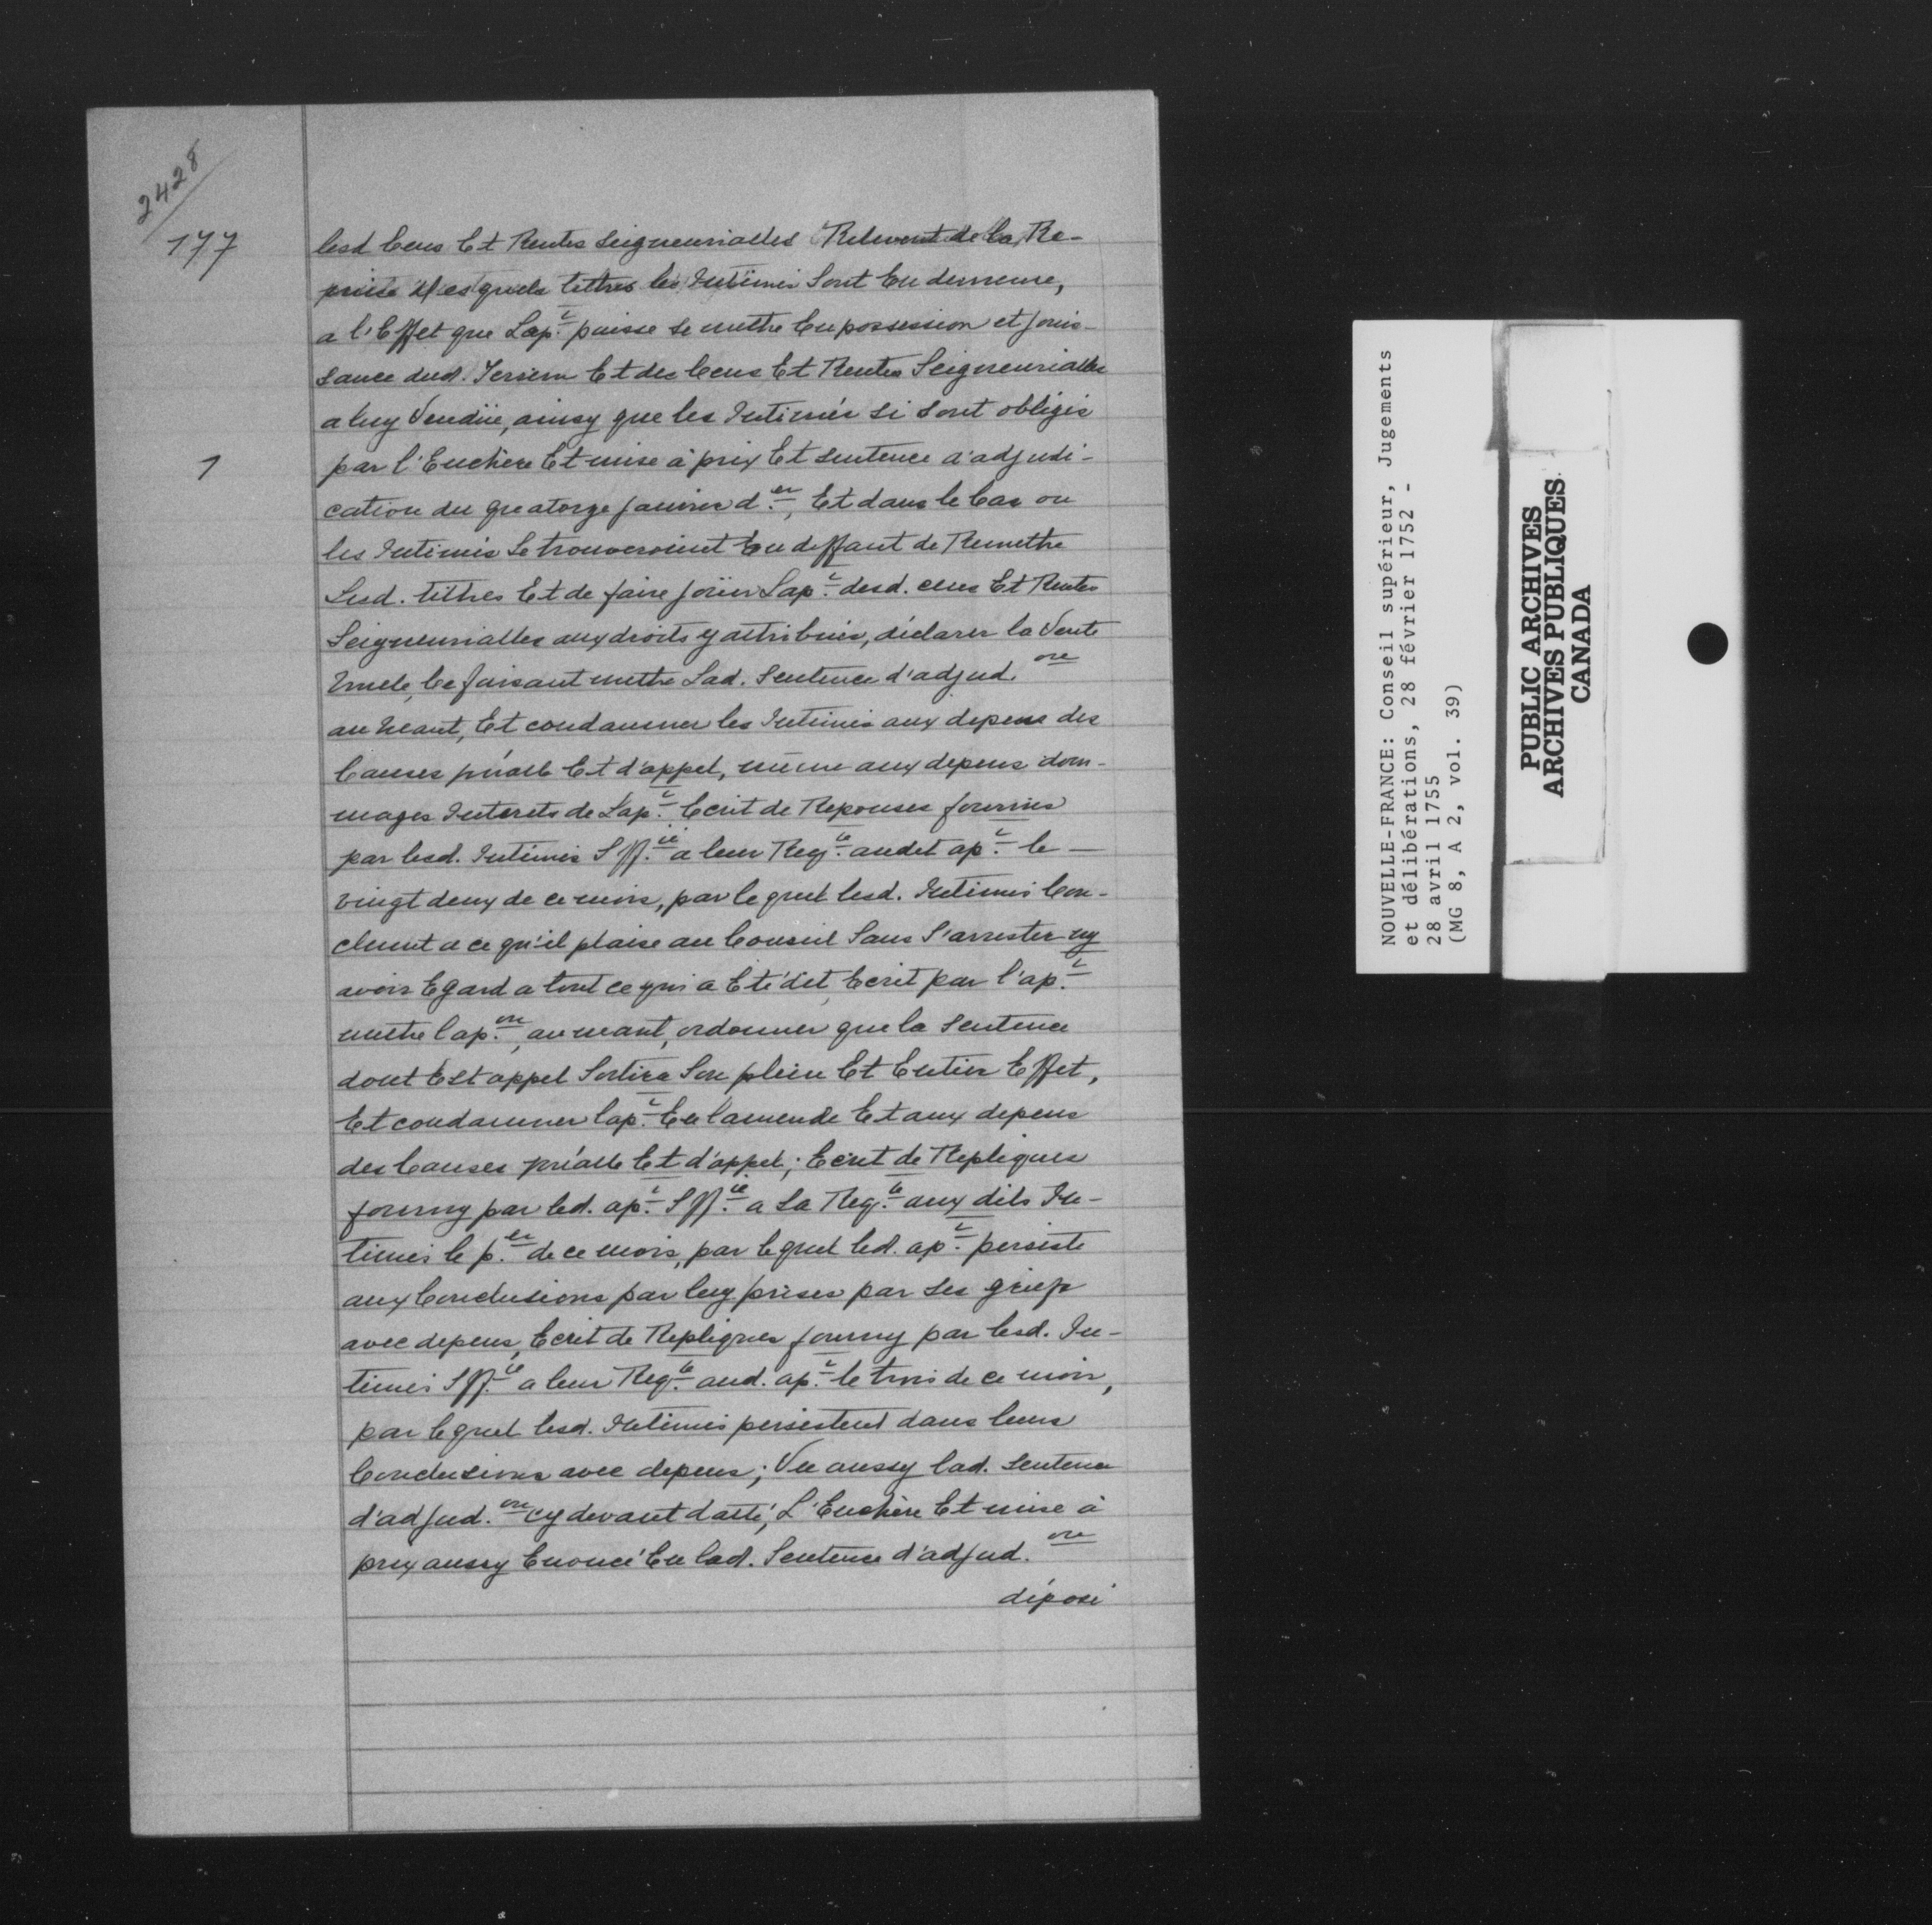 2428
177
lesd Cens Et Rentes Seigneurialles Relevent de la Re-
prise desquels tittres les Intimés Sont En demeure,
a l'Effet que Lap.t puisse se mettre En possession et Jouis-
sance dud. Terrein Et des Cens Et Rentes Seigneurialles
a luy Vendüe, ainsy que les Intimés si sont obligés
1
par l'Enchère Et mise à prix Et sentence d'adjudi-
cation du quatorze Janvier d.er, Et dans le Cas ou
les Intimés Se trouveroient En deffaut de Remettre
Lesd. tittres Et de faire Joüir Lap.t desd. cens Et Rentes
Seigneurialles aux droits y attribués, déclarer la Vente
Nulle, Ce faisant mettre Lad. Sentence d'adjud.on
au Neant, Et condamner les Intimés aux depens des
Causes pñalle Et d'appel, même aux depens dom-
mages Interets de Lap.t Ecrit de Reponses fournies
par lesd. Intimés Sff.ié a leur Req.te audit ap.t le —
vingt deux de ce mois, par lequel lesd. Intimés Con-
cluent a ce qu'il plaise au Conseil Sans S'arrester ny
avoir Egard a tout ce qui a Eté dit, Ecrit par l'ap.t
mettre l'ap.on au neant, ordonner que la Sentence
dont Est appel Sortira Son plein Et Entier Effet,
Et condamner lap.t En lamende Et aux depens
des Causes pñalle Et d'appel; Ecrit de Repliques
fourny par led. ap.t Sff.ié a Sa Req.te aux dits In-
timés le p.er de ce mois, par lequel led. ap.t persiste
aux Conclusions par luy prises par ses griefs
avec depens, Ecrit de Repliques fourny par lesd. In-
timés Sff.ié a leur Req.te aud. ap.t le trois de ce mois,
par lequel lesd. Intimés persistent dans leurs
Conclusions avec depens; Vu aussy lad. Sentence
d'adjud.on cy devant datté; L'Enchère Et mise à
prix aussy Enoncé En lad. Sentence d'adjud.on
déposé
NOUVELLE-FRANCE: Conseil supérieur, Jugements
et délibérations, 28 février 1752 -
28 avril 1755
(MG 8, A 2, vol. 39)
PUBLIC ARCHIVES
ARCHIVES PUBLIQUES
CANADA